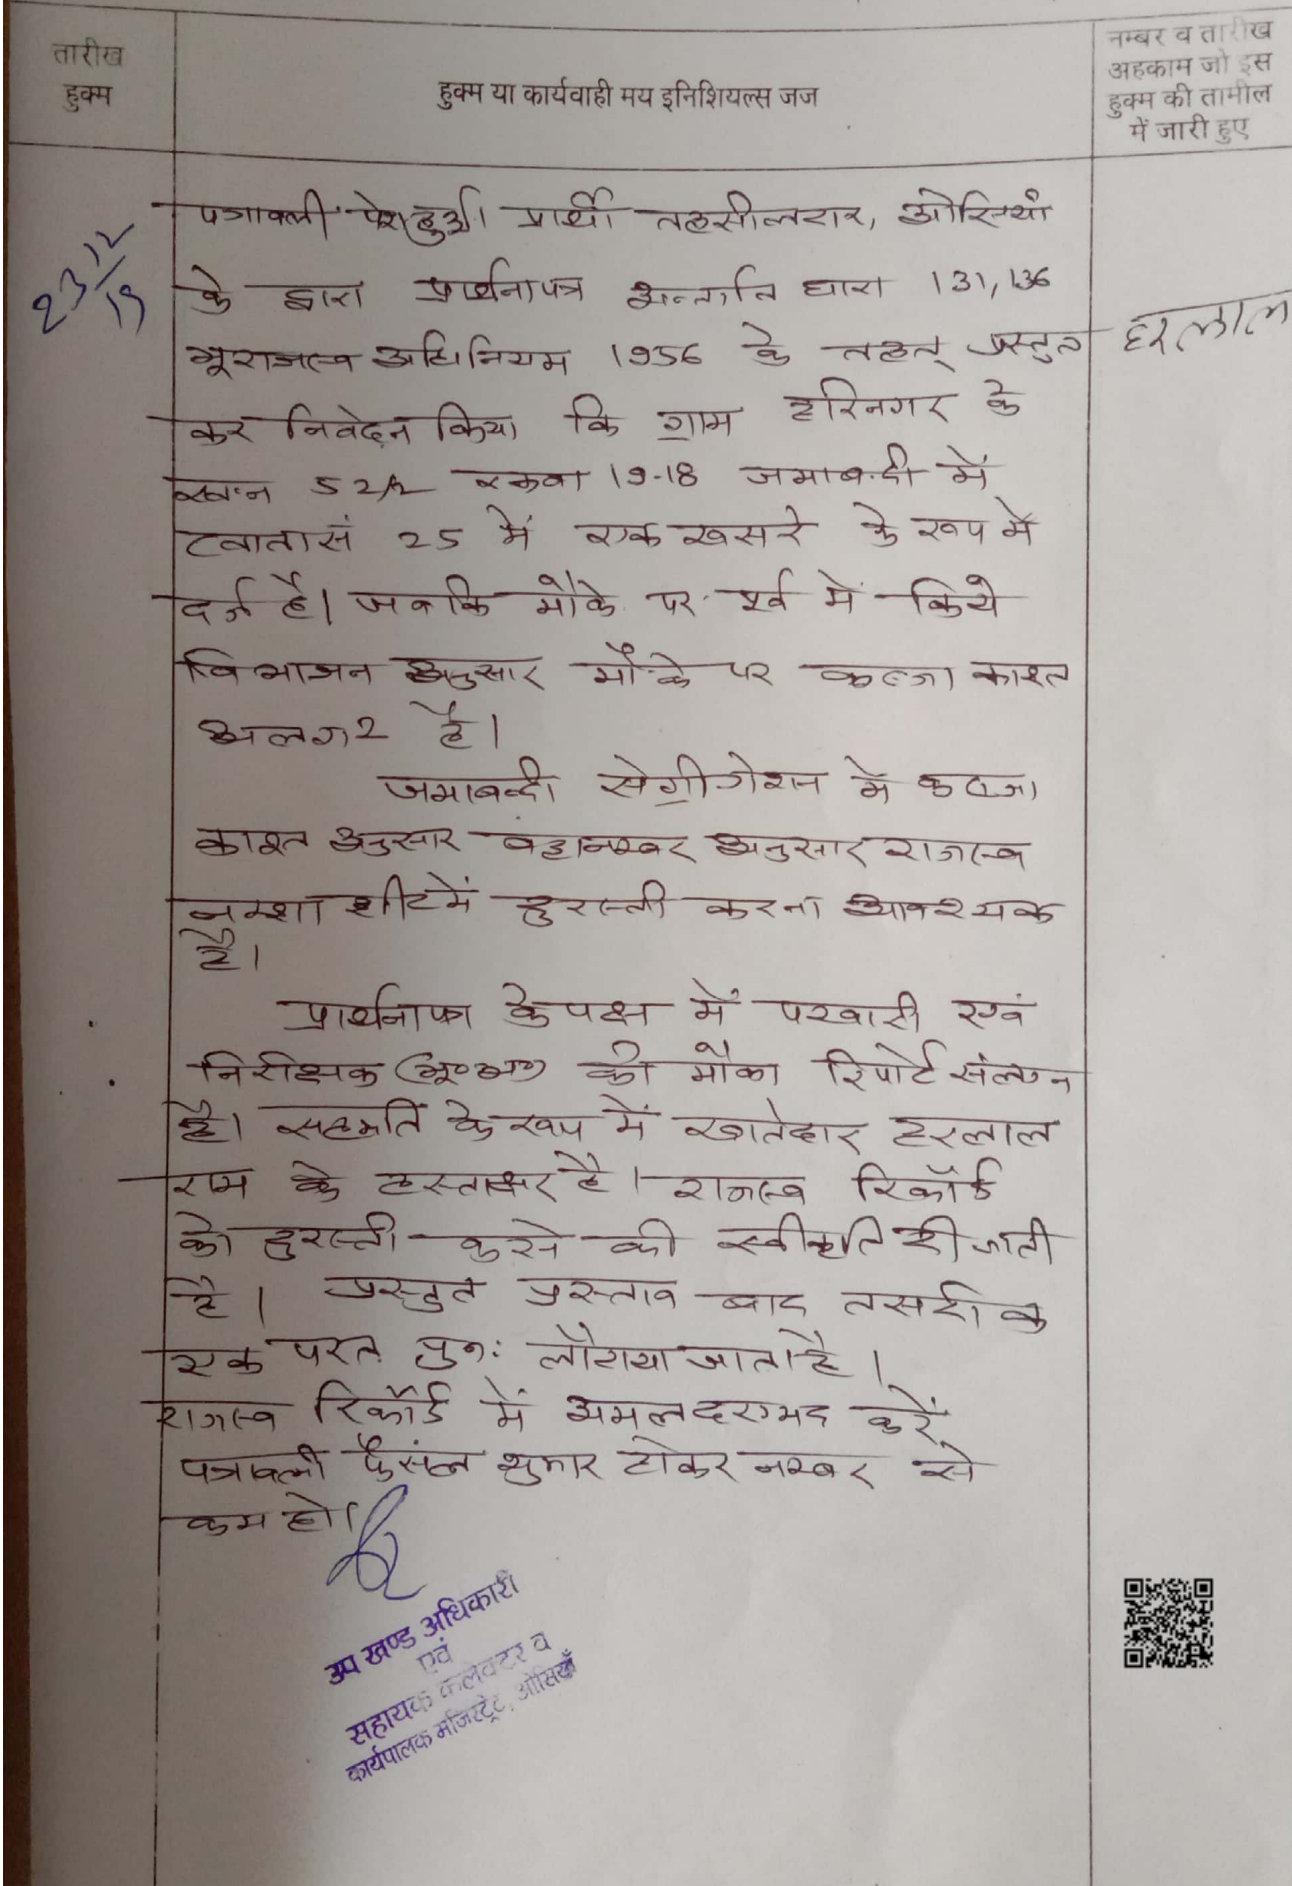 तारीख
हुक्म
हुक्म या कार्यवाही मय इनिशियल्स जज
नम्बर व तारीख
अहकाम जो इस
हुक्म की तामील
में जारी हुए
23/12/19
पत्रावली पेश हुई। प्रार्थी तहसीलदार, ओसियां
के द्वारा प्रार्थनापत्र अन्तर्गत धारा 131, 136
भूराजस्व अधिनियम 1956 के तहत् प्रस्तुत
हरलाल
कर निवेदन किया कि ग्राम हरिनगर के
ख.न 52/2 रकबा 19-18 जमाबन्दी में
खाता सं 25 में एक खसरे के रूप में
दर्ज है। जबकि मौके पर पूर्व में किये
विभाजन अनुसार मौके पर कब्जा काश्त
अलग2 है।
जमाबन्दी सेग्रीगेशन में कब्जा
काश्त अनुसार बट्टा नम्बर अनुसार राजस्व
नक्शा शीट में दुरस्ती करना आवश्यक
है।
प्रार्थनापत्र के पक्ष में पटवारी एवं
निरीक्षक (भू०अ०) की मौका रिपोर्ट संलग्न
है। सहमति के रूप में खातेदार हरलाल
राम के हस्ताक्षर है। राजस्व रिकॉर्ड
को दुरस्ती करने की स्वीकृति दी जाती
है। प्रस्तुत प्रस्ताव बाद तसदीक
एक परत पुनः लौटाया जाता है।
राजस्व रिकॉर्ड में अमलदरामद करें
पत्रावली फैसल शुमार होकर नम्बर से
कम हो।
उप खण्ड अधिकारी
एवं
सहायक कलेक्टर व
कार्यपालक मजिस्ट्रेट, ओसियाँ